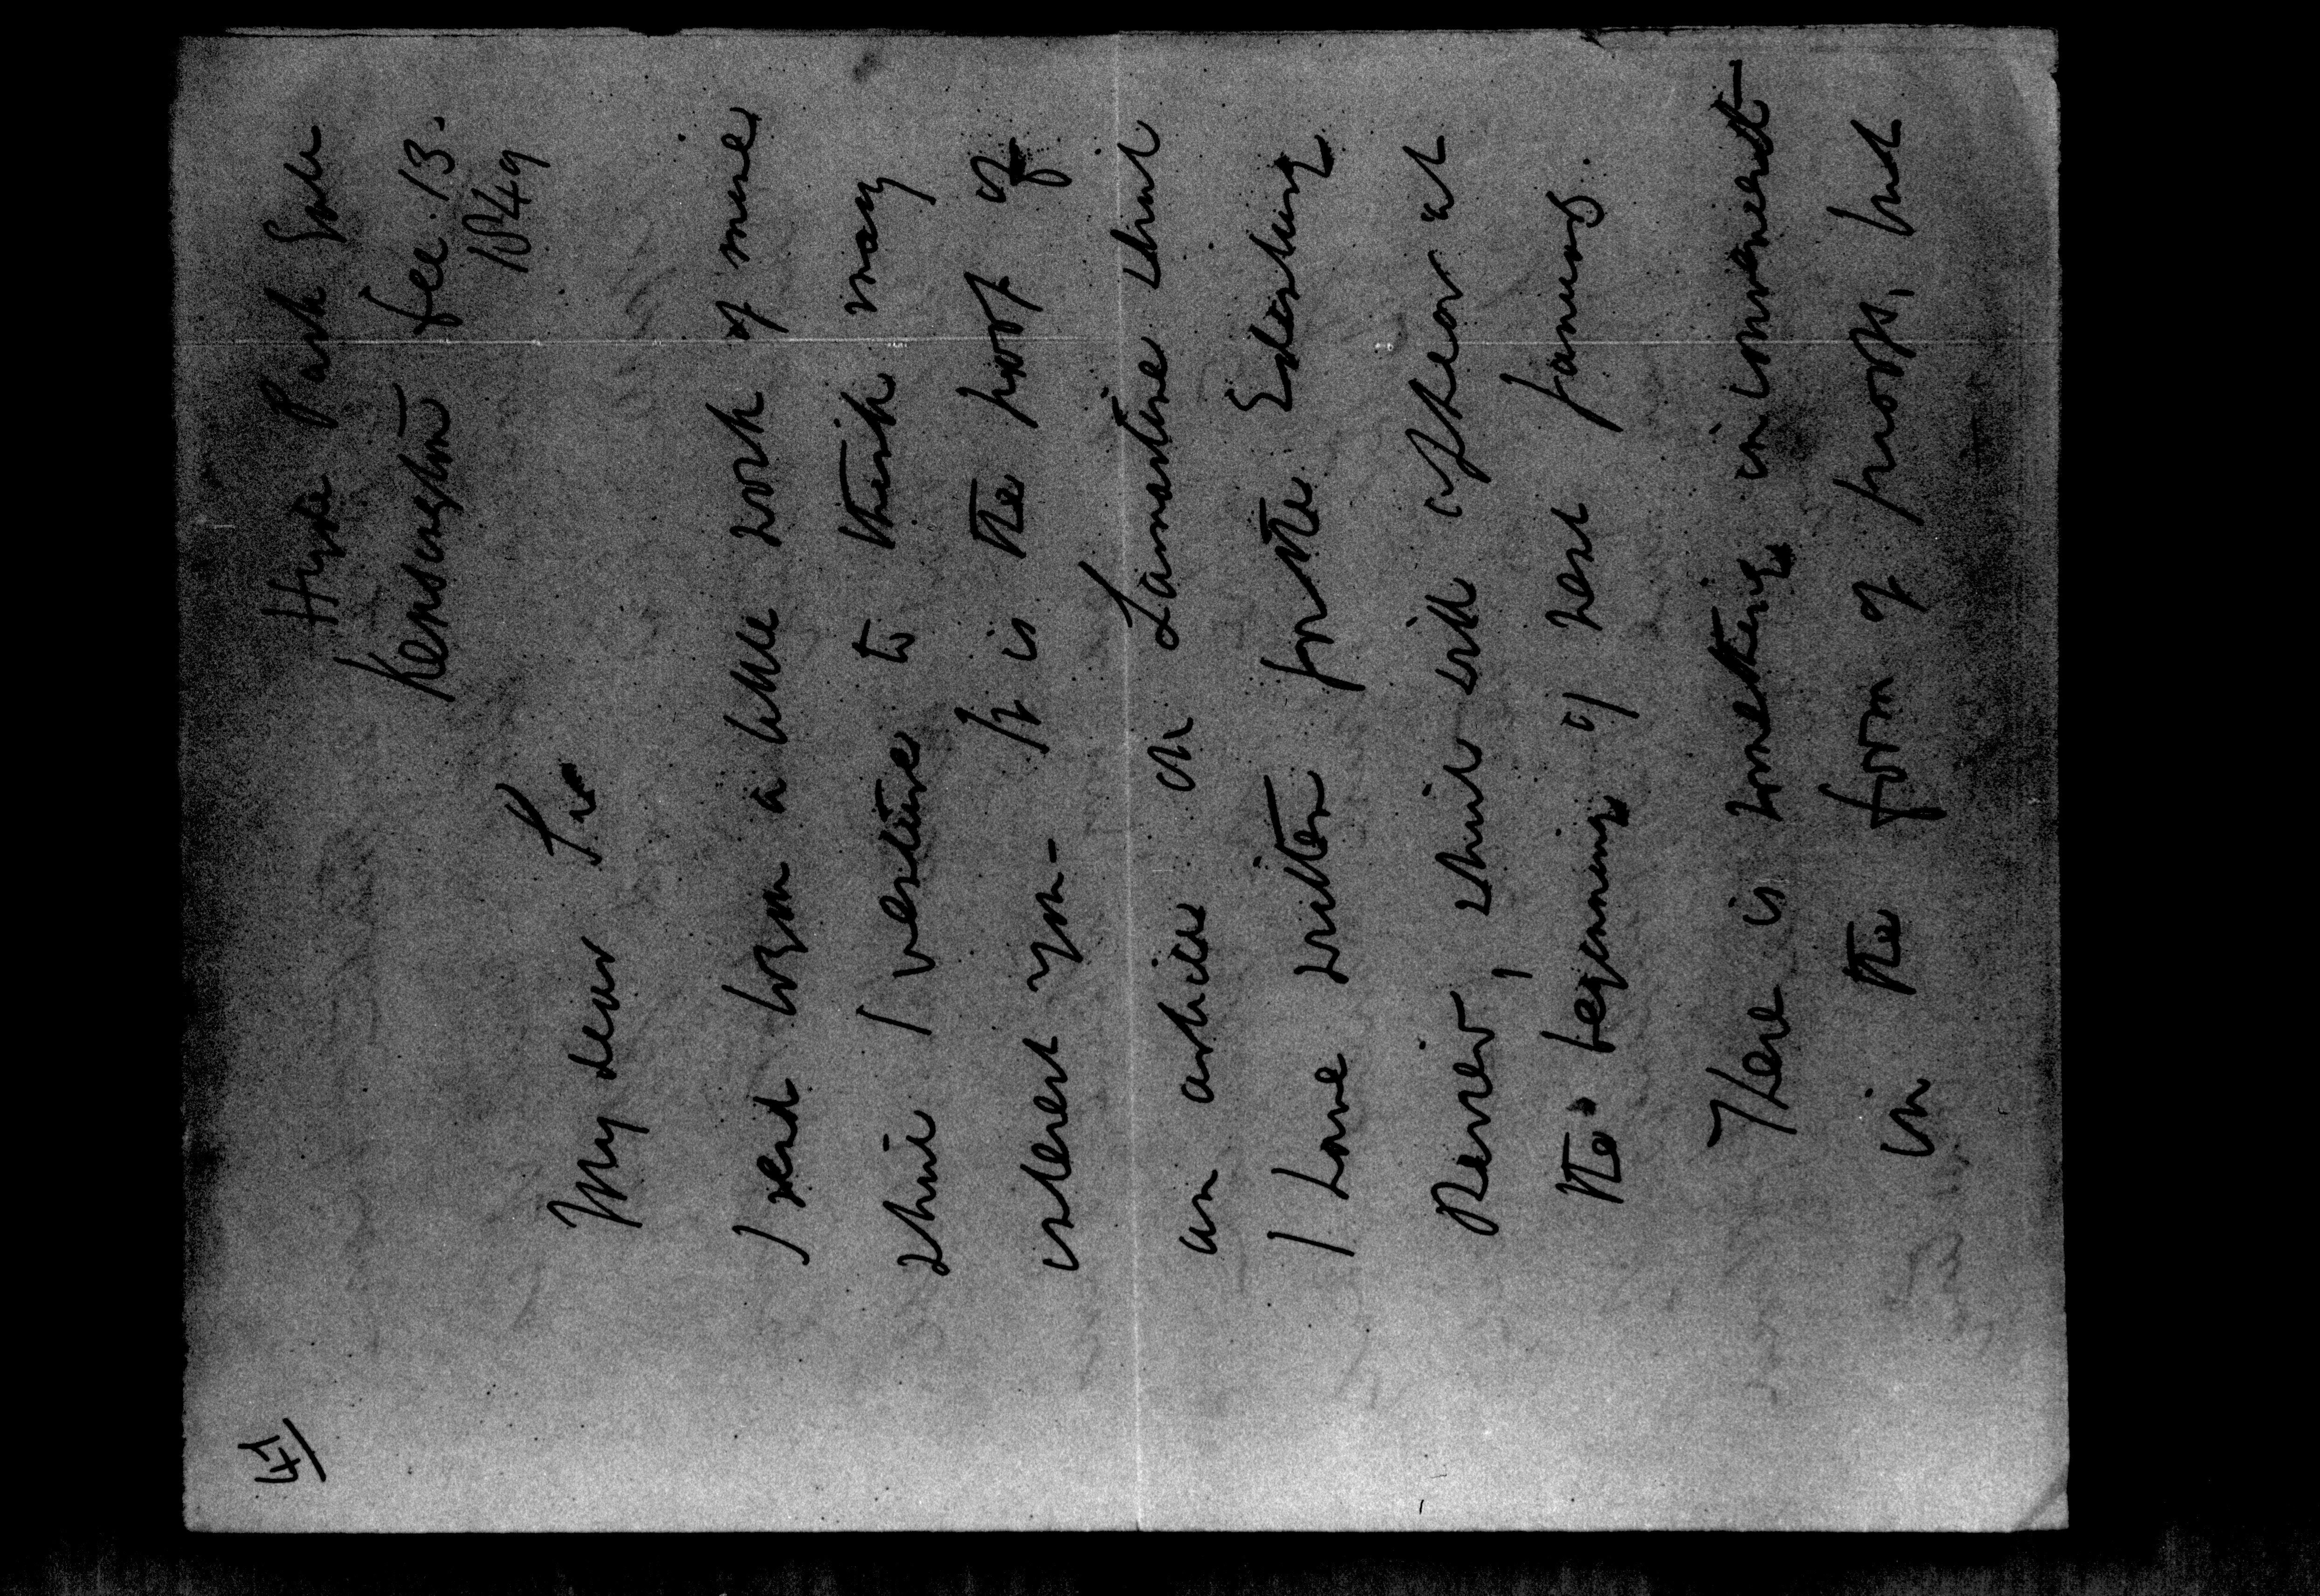 47
Hyde Park Gate
Kensington Dec. 13.
1849
My dear Sir
I send to you a little work of mine
which I venture to think may
interest you – It is the proof of
an article on Lamartine which
I have written for the Edinburg
Review, which will appear at
the beginning of next January.
There is something inconvenient
in the form of proofs, but